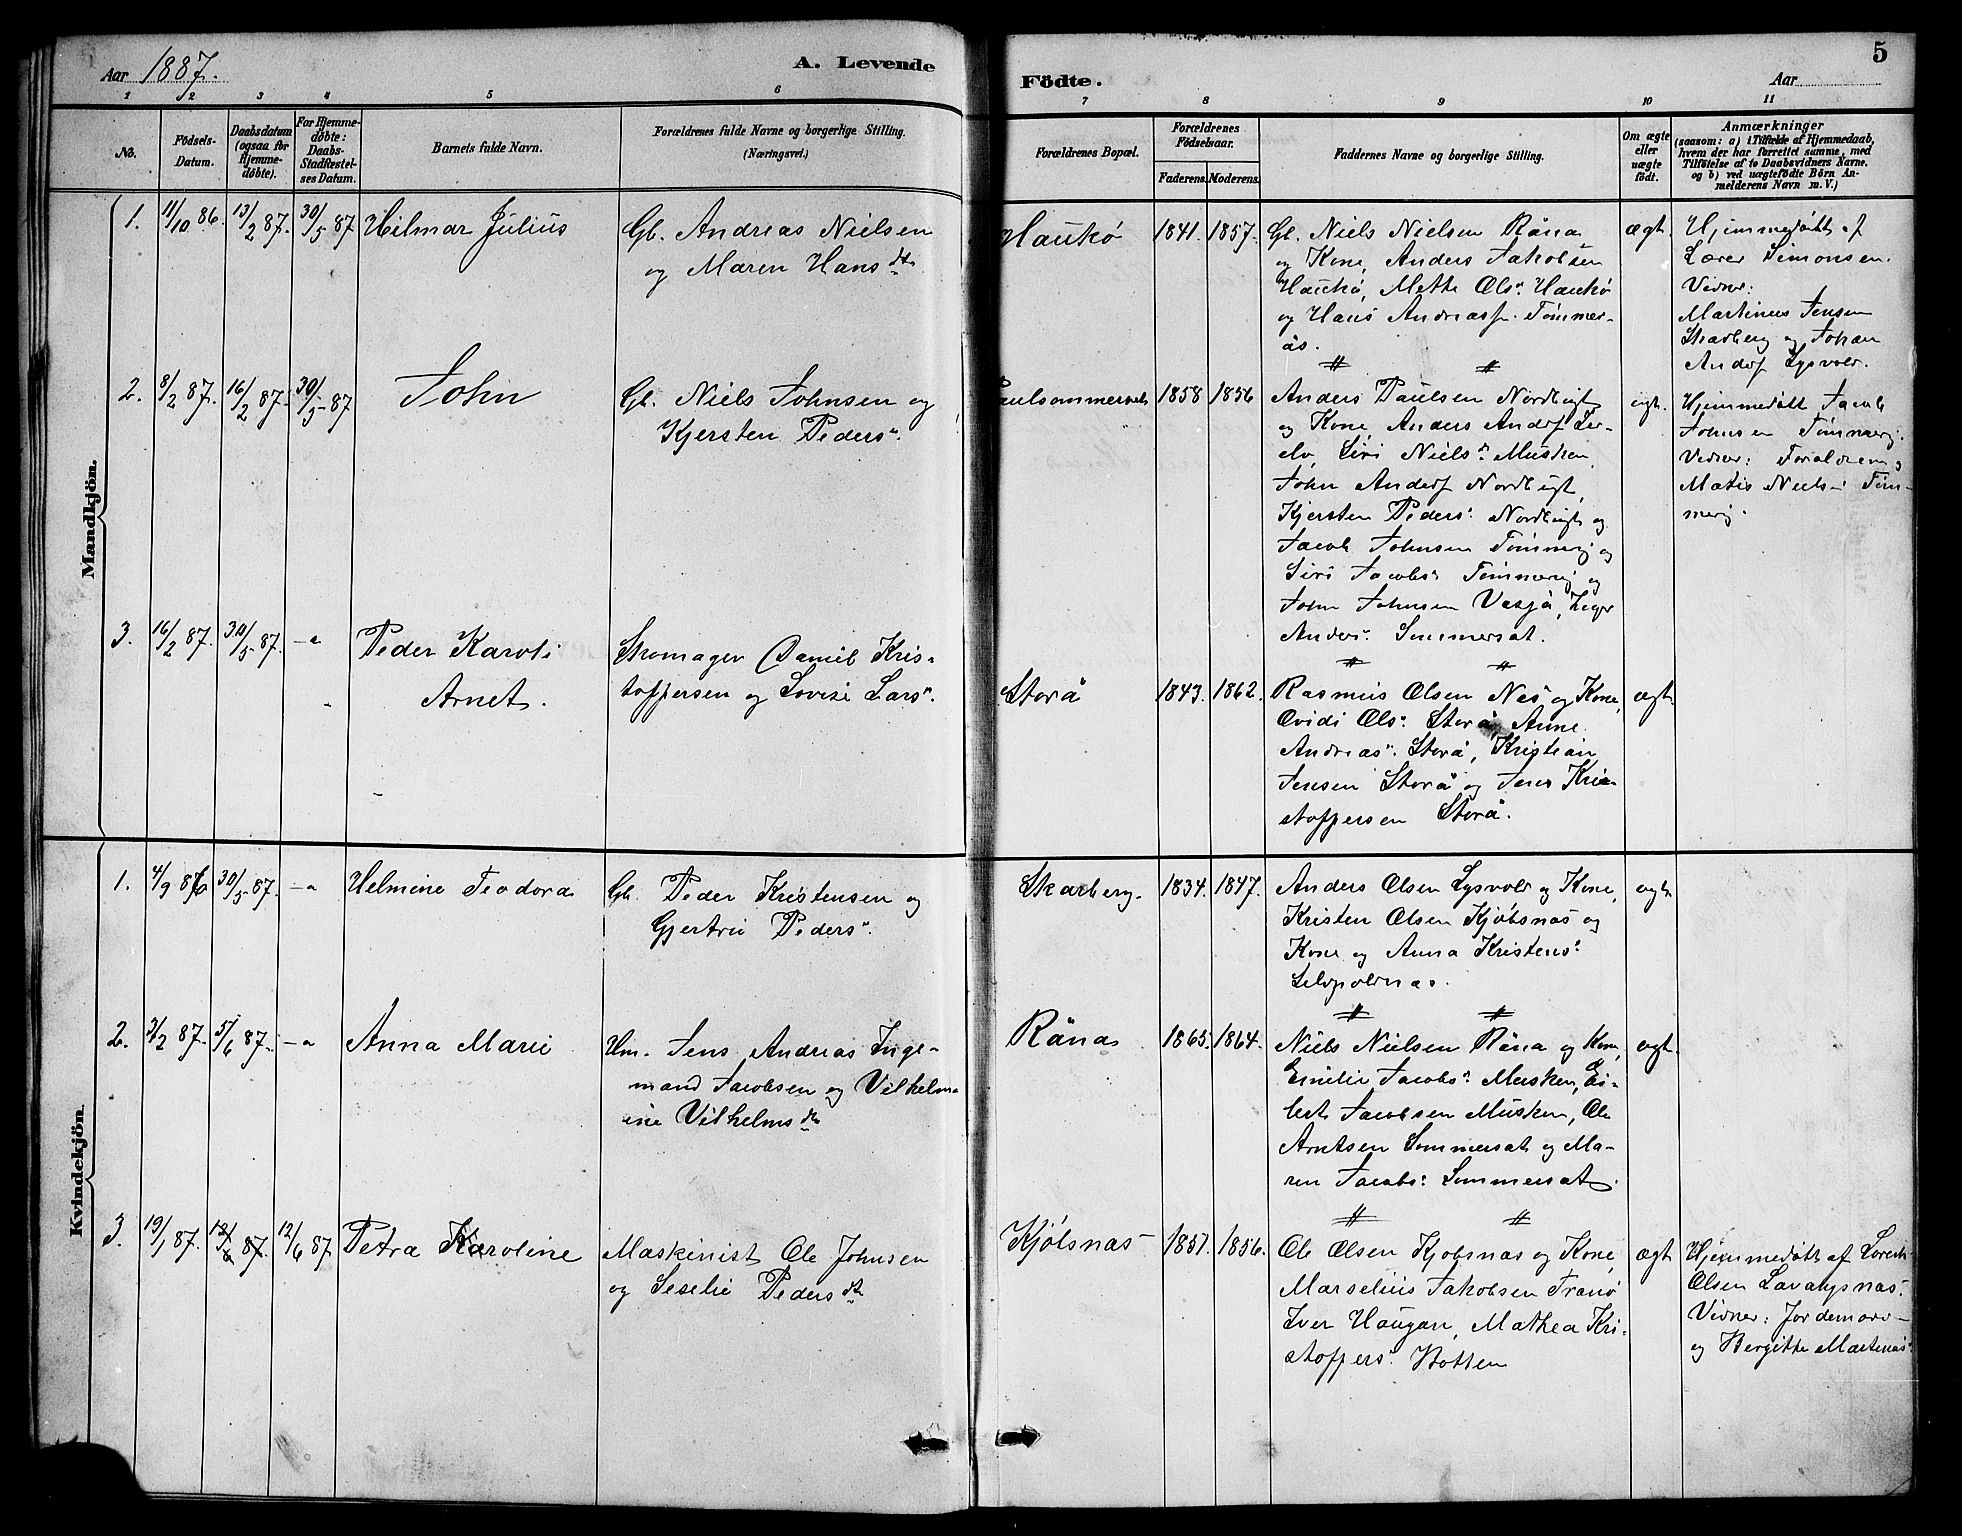 Aar 1887.
A. Levende
Födte.
Aar
5
1 2 3 4 5 6 7 8 9 10 11
No.
Födsels-
Datum.
Daabsdatum
(ogsaa for
Hjemme-
døbte).
For Hjemme-
døbte:
Daabs-
Stadfæstel-
ses Datum.
Barnets fulde Navn.
Forældrenes fulde Navne og borgerlige Stilling.
(Næringsvei.)
Forældrenes Bopæl.
Forældrenes
Födselsaar.
Faderens. Moderens.
Faddernes Navne og borgerlige Stilling.
Om ægte
eller
uægte
födt.
Anmærkninger
(saasom: a) i Tilfælde af Hjemmedaab,
hvem der har forrettet samme, med
Tilföielse af to Daabsvidners Navne.
og b) ved uægtefödte Börn An-
melderens Navn m. V.)
Mandkjön.
1. 11/10 86. 13/2 87. 30/5 87 Hilmar Julius
Gb. Andreas Nielsen
og Maren Hans dtr
Haukø 1841. 1857.
Gl. Niels Nielsen Råna
og Kone, Anders Jakobsen
Haukø, Mette Ols: Haukø
og Hans Andreass. Tömmer-
ås.
ægt.
Hjemmedøbt af
Lærer Simonsen.
Vidner:
Martinus Jensen
Skarberg og Johan
Anders Lysvold.
2. 8/2 87. 16/2 87. 30/5 87 John
Gb. Niels Johnsen og
Kjersten Peders".
1858 1856
Anders Paulsen Nordbugt
og Kone Anders Anders
Siri Niels: Musken
John Anders Nordbugt,
Kjersten Peders: Nordbugt og
Jacob Johnsen Tömmerrig og
Siri Jacobs: Tömmerrig og
John Johnsen Vasjå, Inger
Anders: Sommersæt.
ægt.
Hjemmedøbt Jacob
Johnsen Tömmerrig.
Vidner: Forældrene og
Matis Niels- Töm-
merrig.
3. 16/2 87. 30/5 87. — " Peder Karoli
Arnet.
Skomager Daniel Kris-
toffersen og Lovise Lars".
Storå 1843. 1862.
Rasmus Olsen Nes og Kone,
Ovidi Ols: Storå, Anne
Andreas": Storå, Kristian
Jensen Storå og Jens Kri-
stoffersen Storå.
ægt.
Kvindekjön.
1. 4/9 86 30/5 87. — " Helmine Teodora
Gb. Peder Kristensen og
Gjertru Peders".
Skarberg. 1834. 1847.
Anders Olsen Lysvold og Kone,
Kristen Olsen Kjøbsnæs og
Kone og Anna Kristens:
Leopoldnæs.
ægt.
2. 3/2 87. 5/6 87. — " Anna Marie
Um. Jens Andreas Inge-
mand Jacobsen og Vilhelm-
ine Vilhelms dtr
Råna 1865. 1864.
Niels Nielsen Råna og Kone,
Emilie Jacobs: Musken, Ei-
lert Jacobsen Musken, Ole
Arntsen Sommersæt og Ma-
ren Jacobs: Sommersæt.
ægt.
3. 19/1 87. 12/6 87. 12/6 87. Petra Karoline
Maskinist Ole Johnsen
og Seselie Peders dtr
Kjöbsnæs 1857. 1856.
Ole Olsen Kjobsnæs og Kone,
Marselius Jakobsen Tranö
Iver Haugan, Mathea Kri-
stoffers: Botten
ægt
Hjemmedøbt af Lorents
Olsen Lavangsnæs.
Vidner: Jordemor
og Bergitte Martinus: